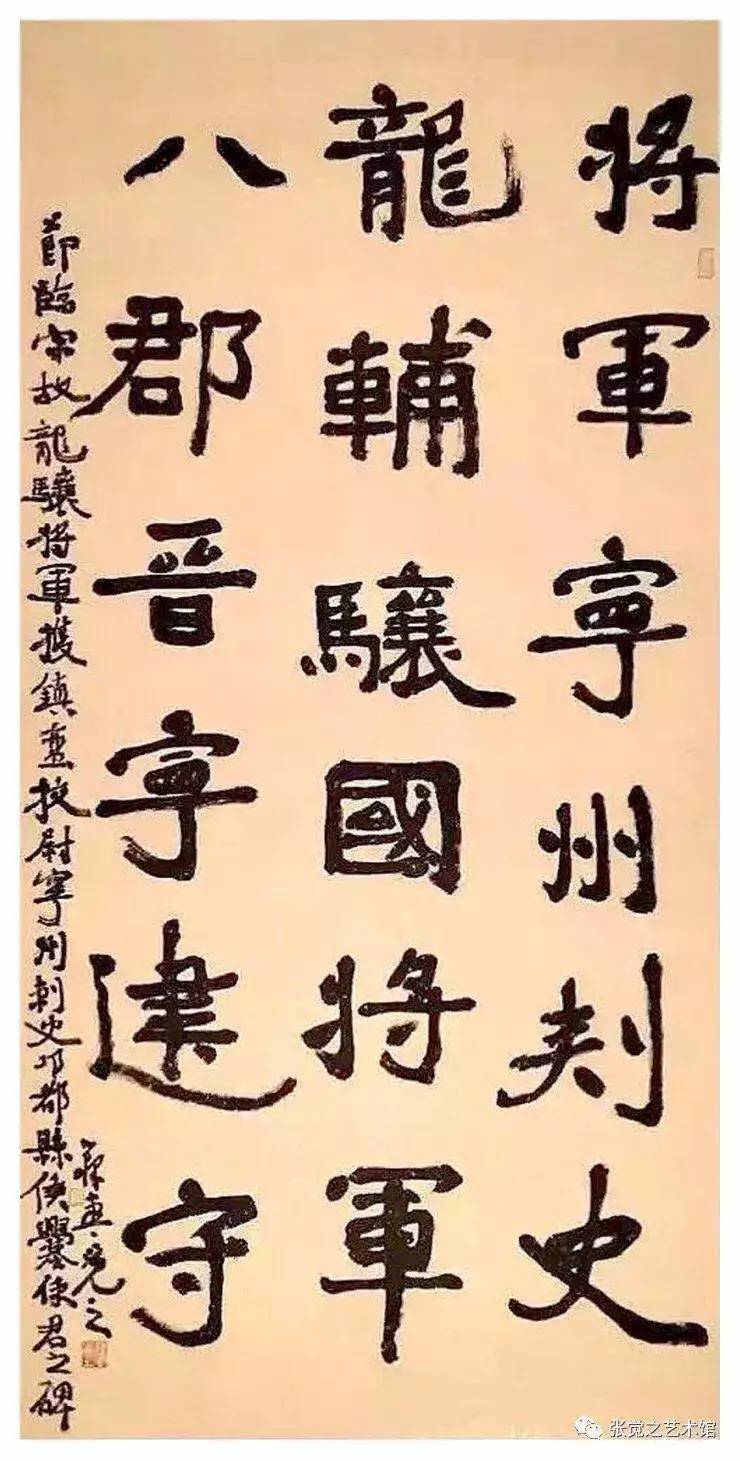 将軍寧州刾史
龍輔驤國将軍
八郡晋寧建守
節臨宋故龍驤将軍護鎮蠻挍尉寧州刺史邛都縣侯爨使君之碑
覺之
张觉之艺术馆